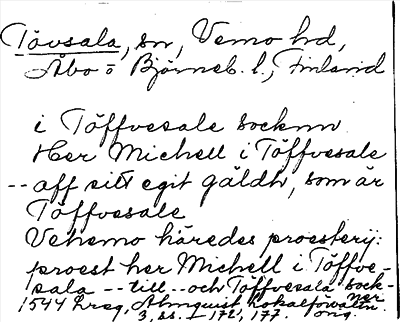 Tövsala, sn, Vemo hd,
Åbo o Björneb. l., Finland
i Töffvesale socknn
Her Michell i Töffvesale
-- aff sitt egit gäldh, som är
Töffvesale
Vehemo häredes proesterij:
proest her Michell i Töffve-
sala -- till -- och Töffvesala sock-
ner
1544 Almquist Lokalförvaltn.
3, ss. 172, 177. orig.